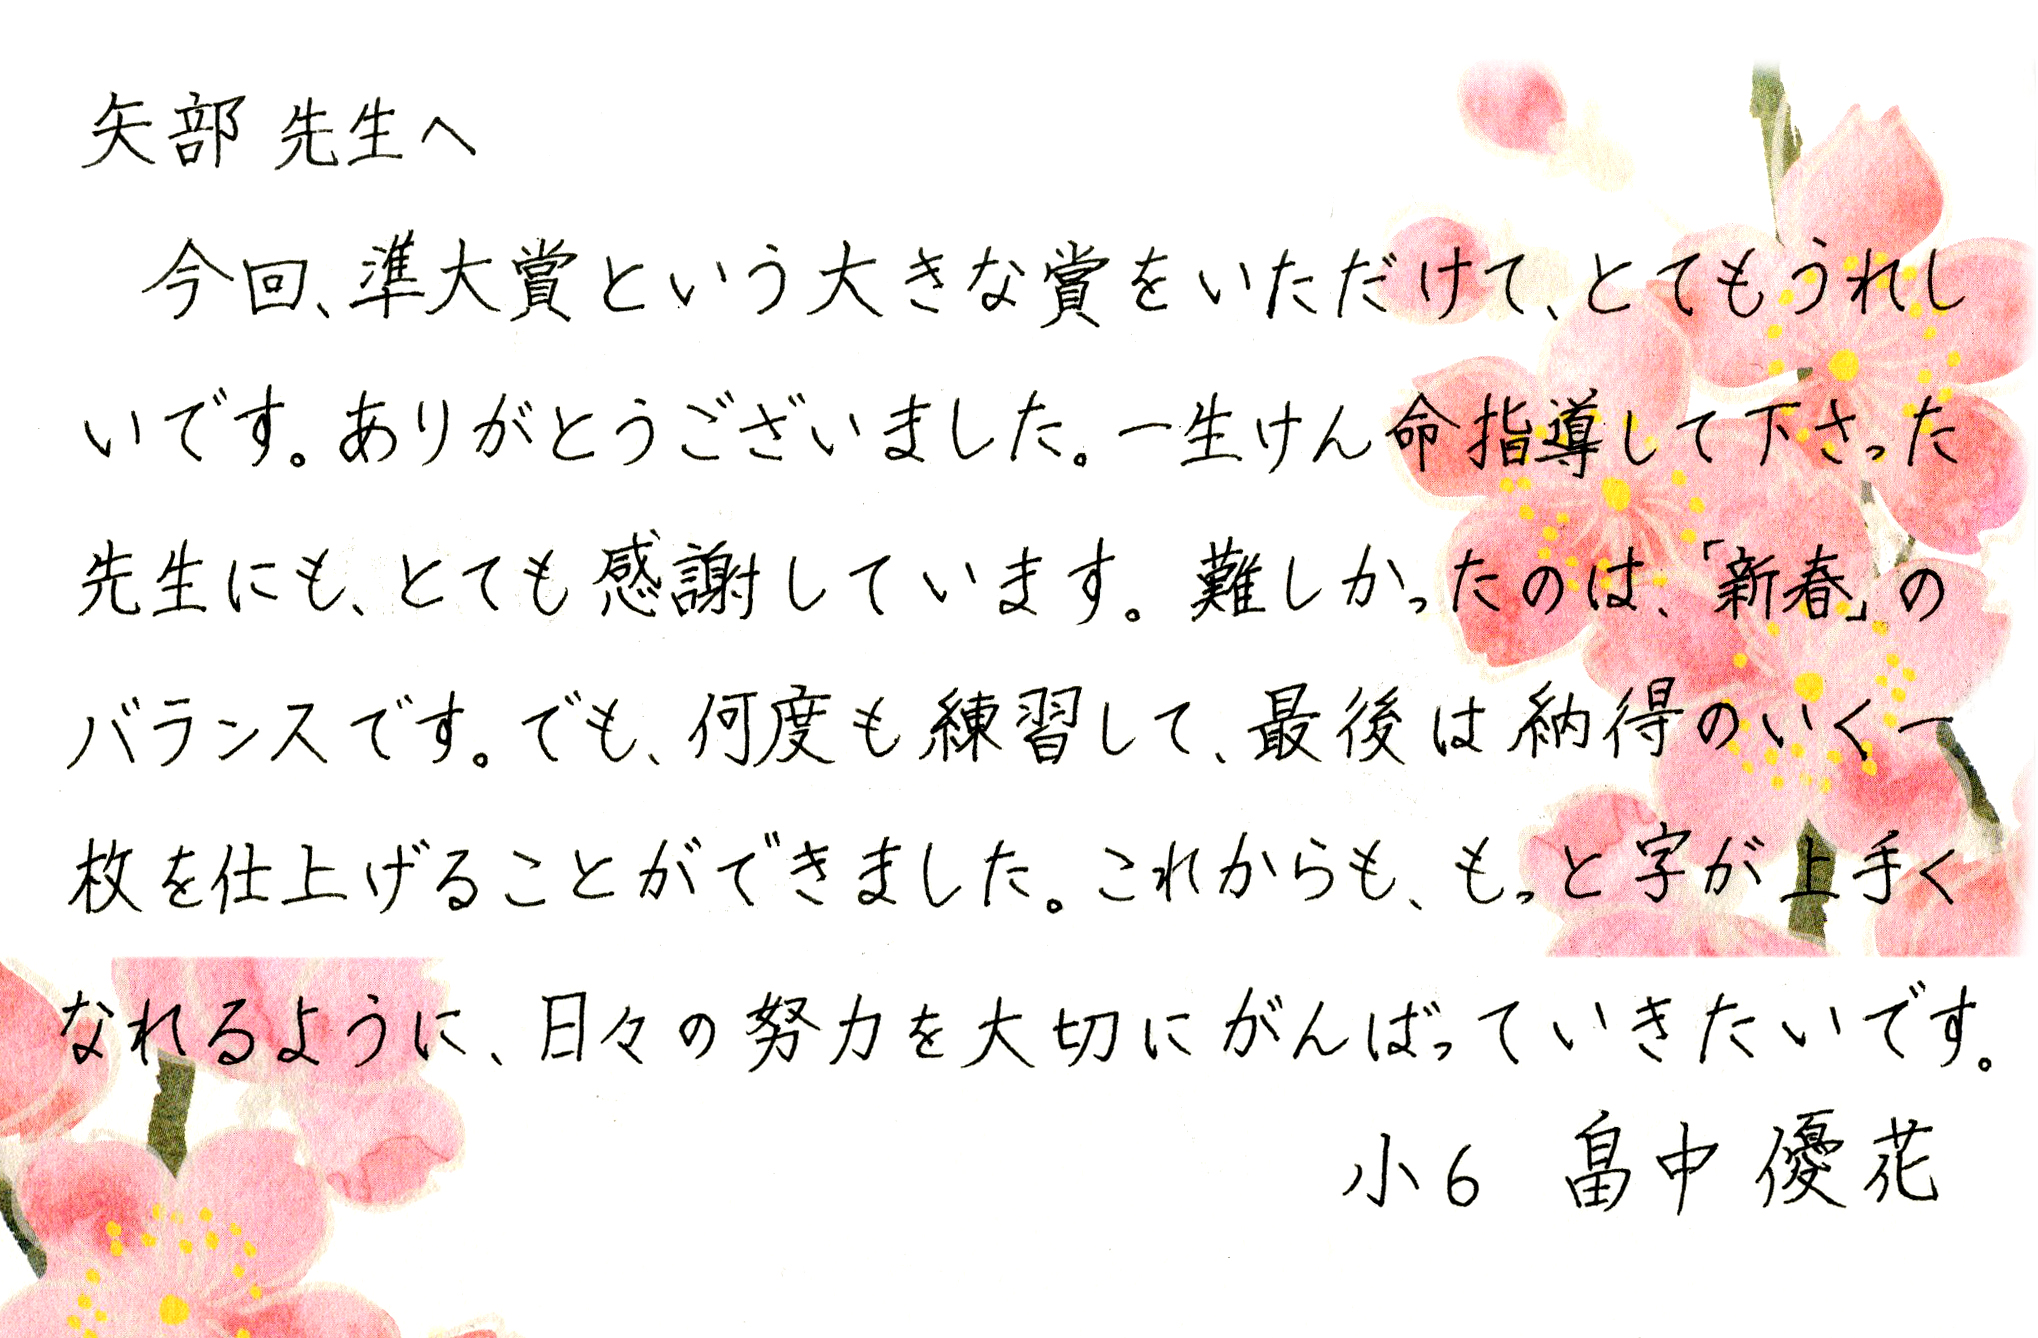 矢部 先生へ
今回、準大賞という大きな賞をいただけて、とてもうれし
いです。ありがとうございました。一生けん命指導して下さった
先生にも、とても感謝しています。難しかったのは、「新春」の
バランスです。でも、何度も練習して、最後は納得のいく一
枚を仕上げることができました。これからも、もっと字が上手く
なれるように、日々の努力を大切にがんばっていきたいです。
小6 畠中 優花